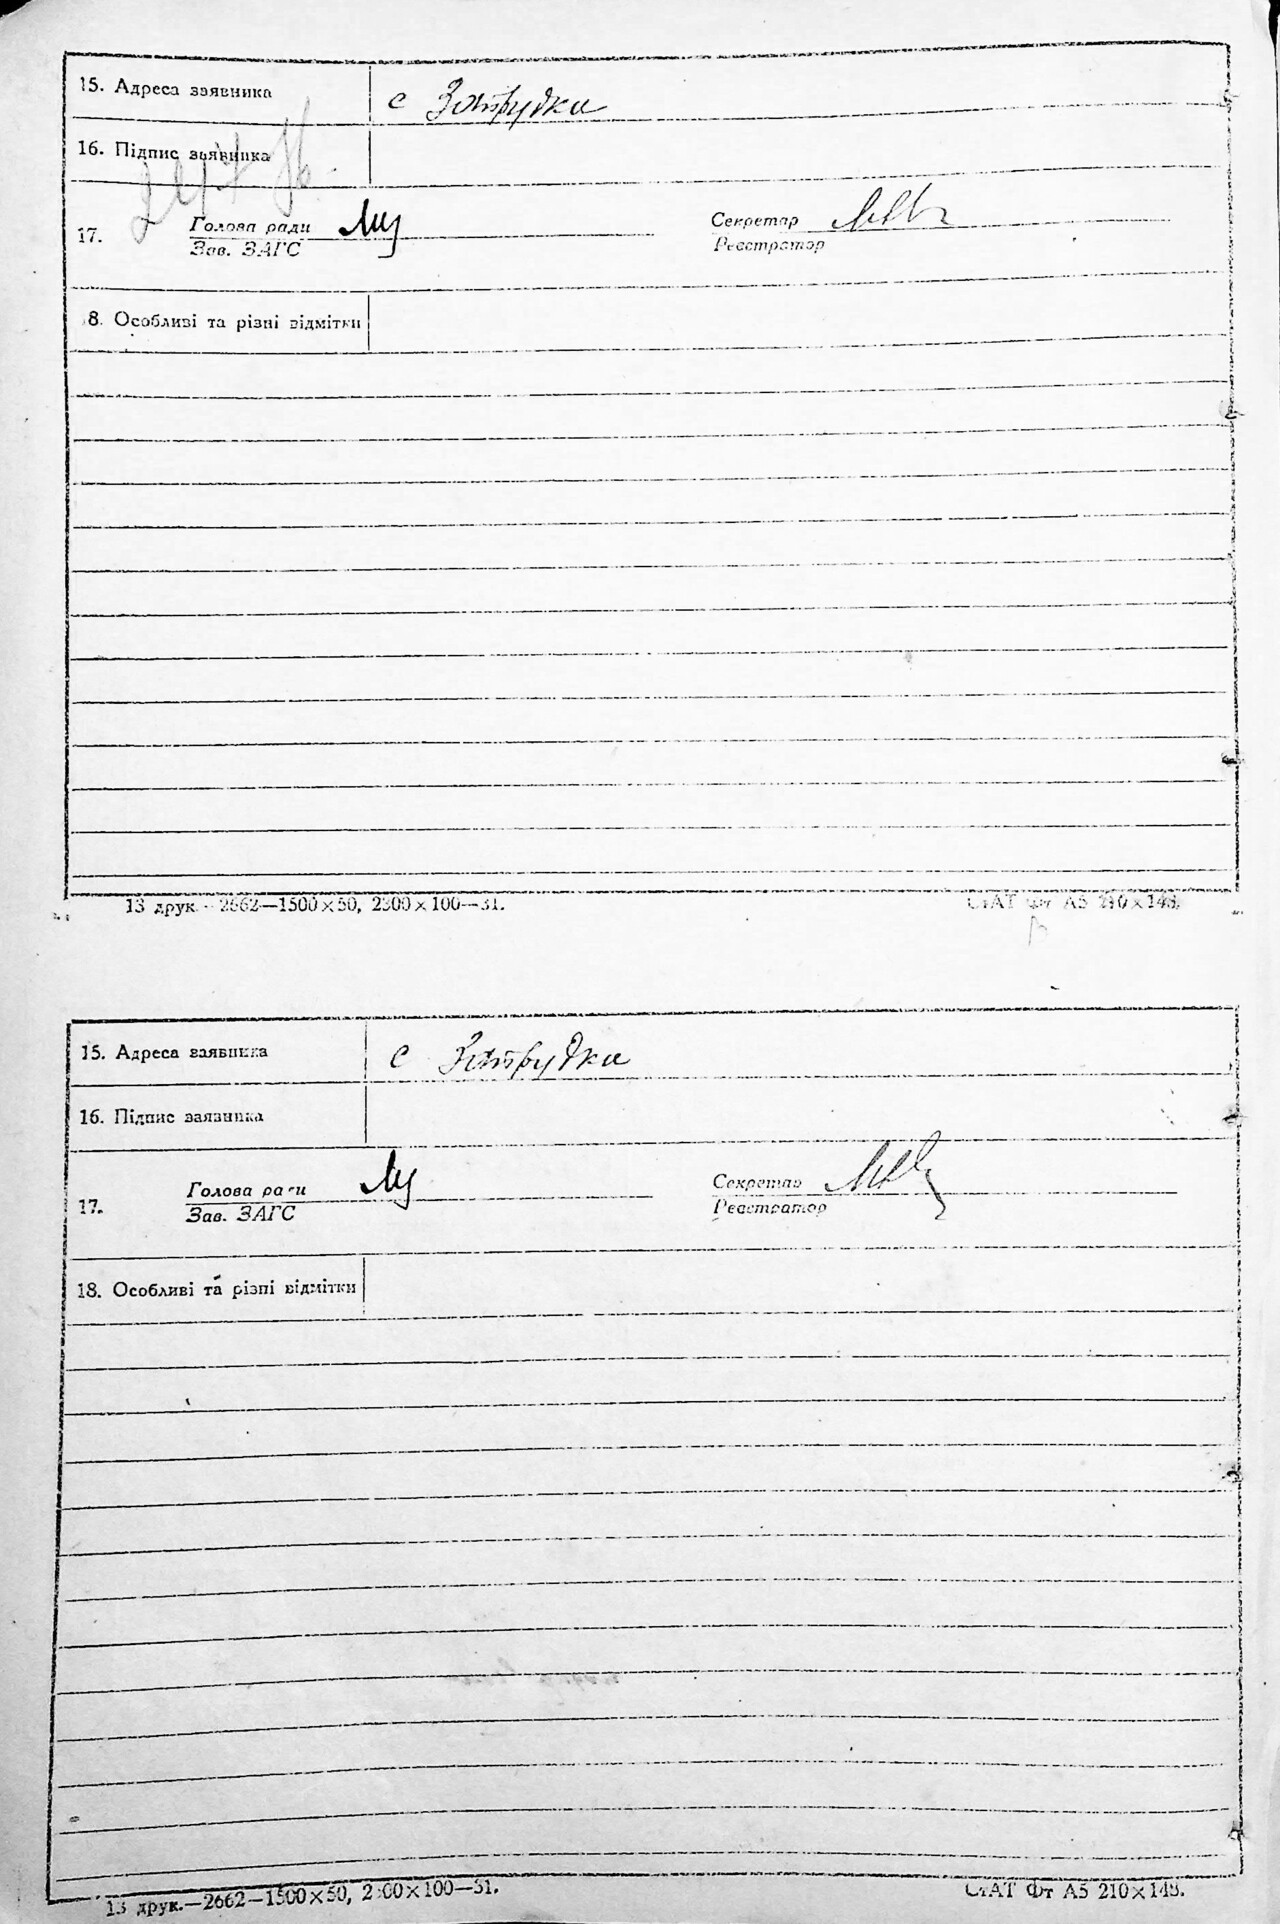 15. Адреса заявника с Затрудки
16. Підпис заявника
247
17. Голова ради Секретар
Зав. ЗАГС Реєстратор
8. Особливі та різні відмітки
13 друк.—2662—1500×50, 2300×100—31.
СтАТ Фт А5 210×148.
15. Адреса заявника с Затрудки
16. Підпис заявника
17. Голова ради Секретар
Зав. ЗАГС Реєстратор
18. Особливі та різні відмітки
13 друк.—2662—1500×50, 2300×100—31.
СтАТ Фт А5 210×148.